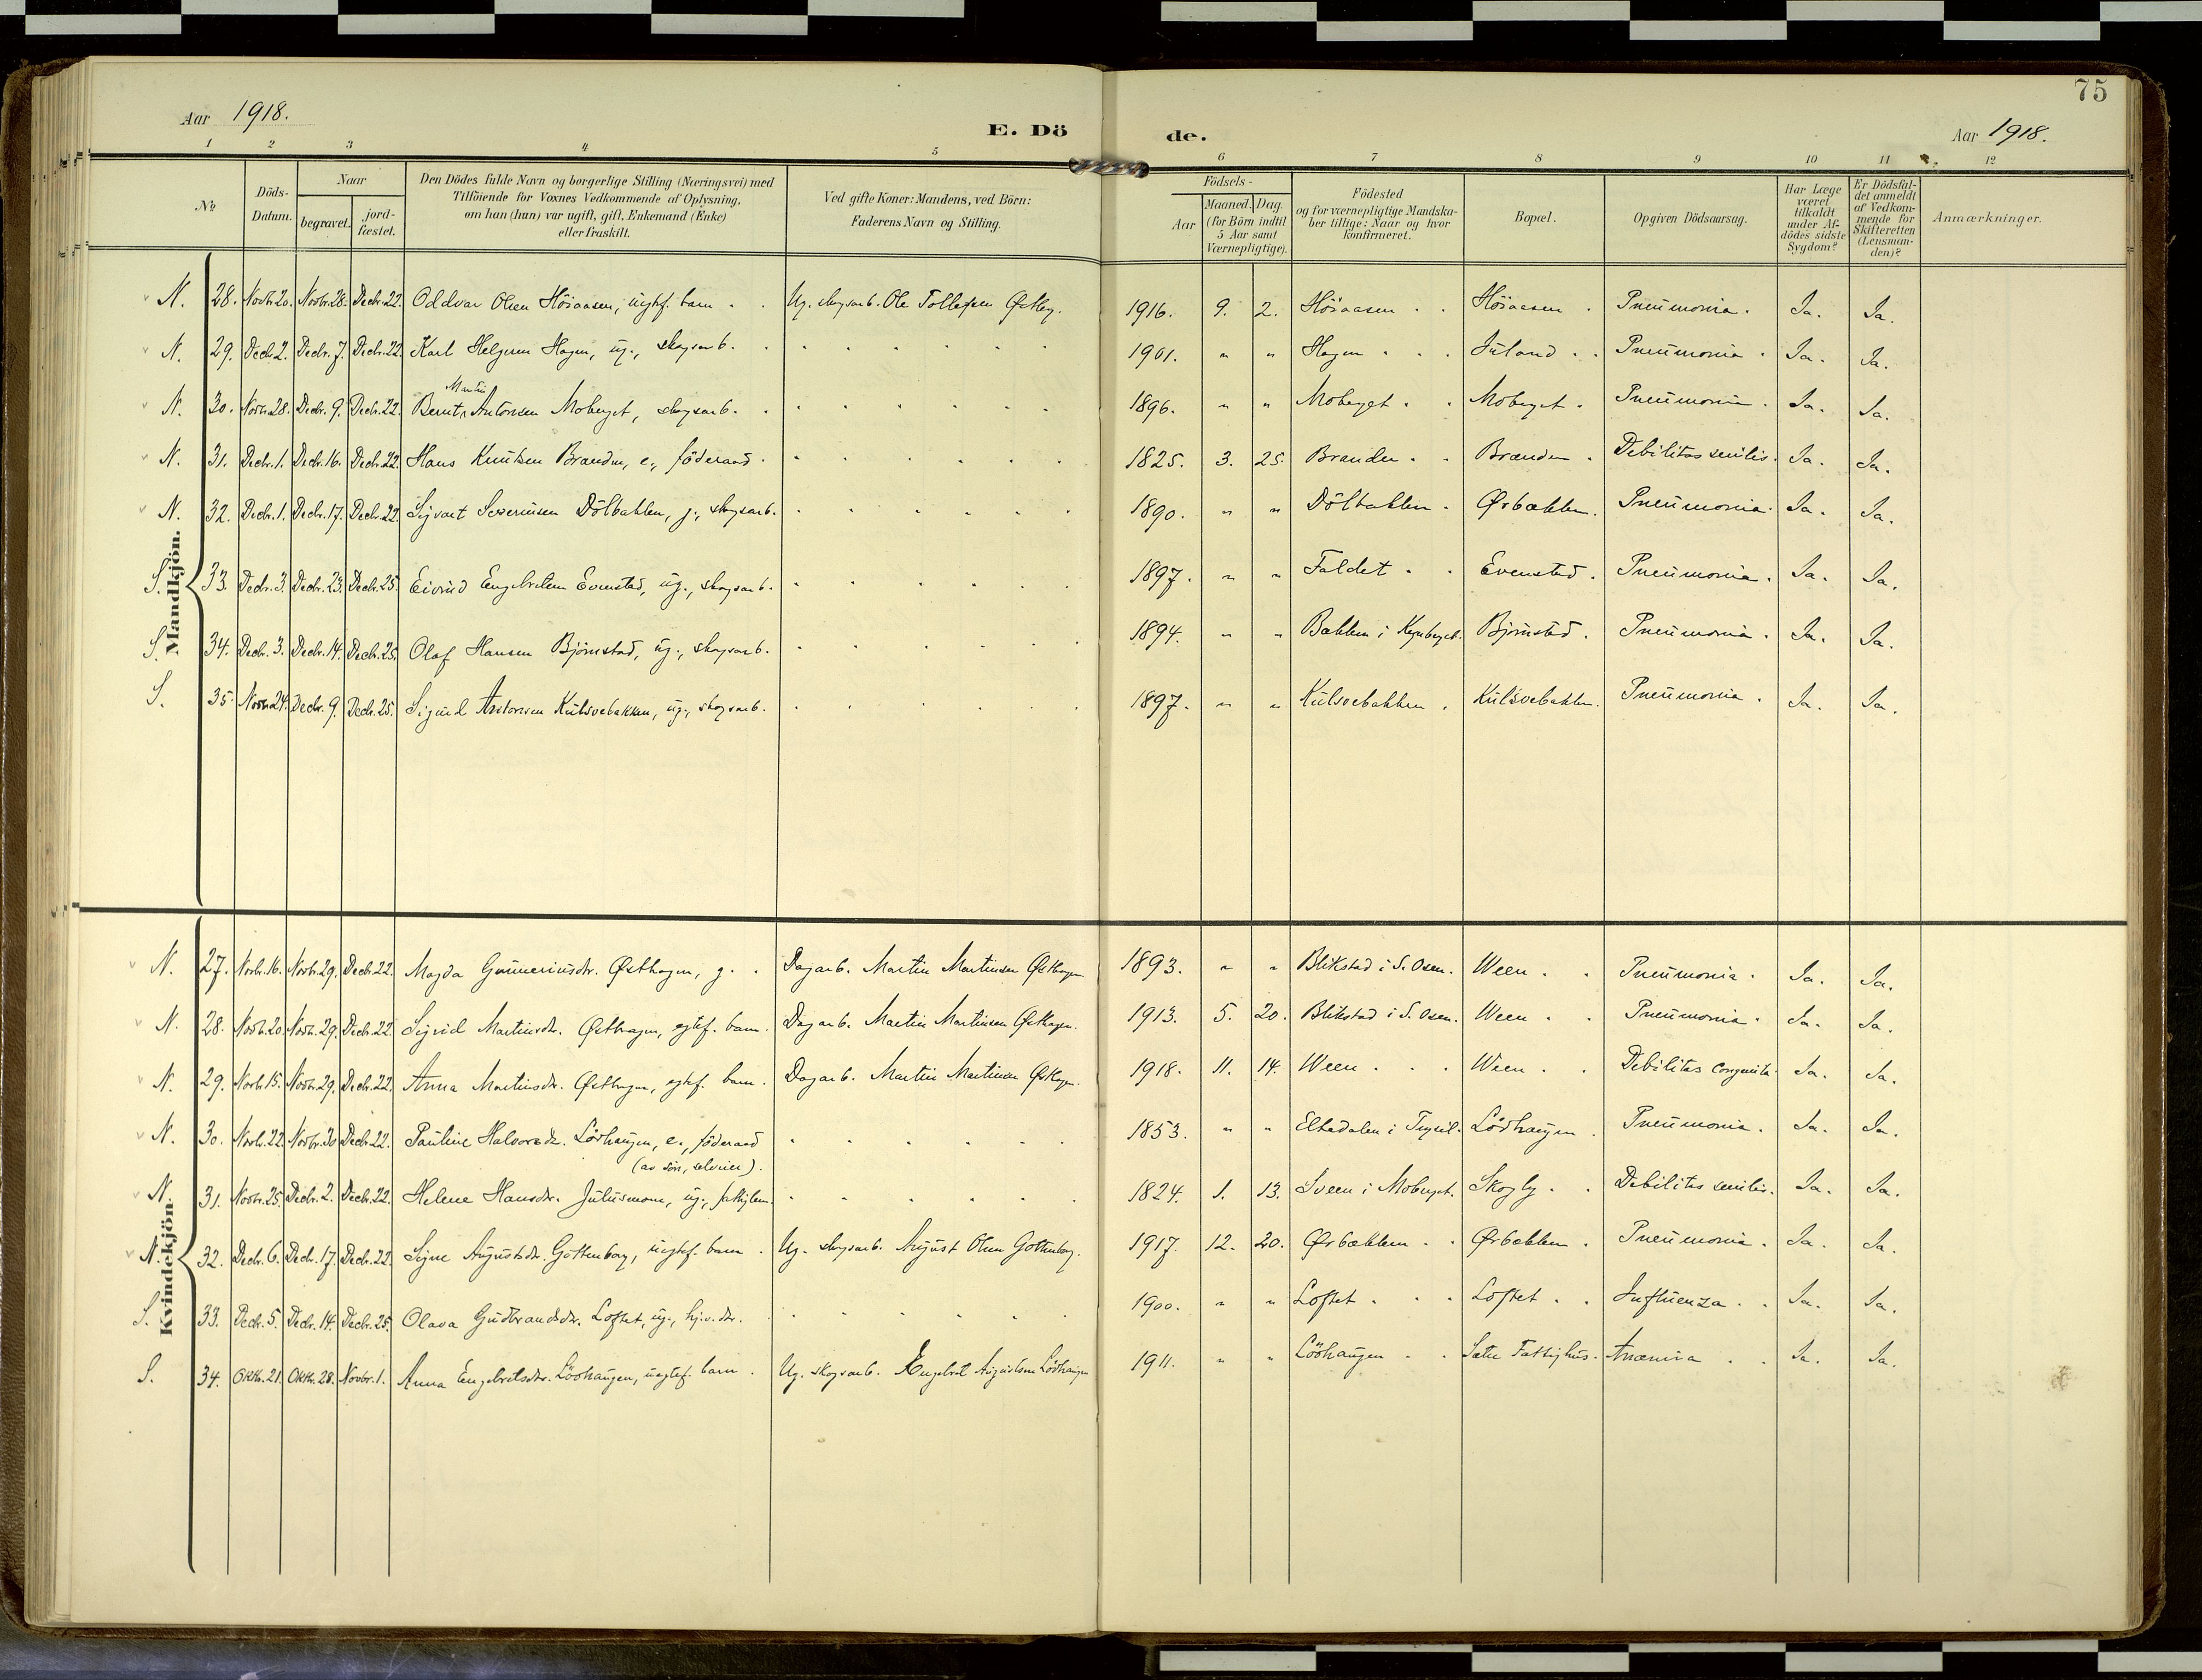 75
Aar 1918. E. Dö de. Aar 1918.
1 2 3 4 5 6 7 8 9 10 11 12
No
Döds-Datum.
Naar
begravet.
jord-fæstet.
Den Dödes fulde Navn og borgerlige Stilling (Næringsvei) med
Tilföiende for Voxnes Vedkommende af Oplysning,
om han (hun) var ugift, gift, Enkemand (Enke)
eller fraskilt.
Ved gifte Koner: Mandens, ved Börn:
Faderens Navn og Stilling.
Födsels-
Aar
Maaned. Dag.
(for Börn indtil
5 Aar samt
Værnepligtige).
Födested
og for værnepligtige Mandska-
ber tillige: Naar og hvor
konfirmeret.
Bopæl.
Opgiven Dödsaarsag.
Har Læge
været
tilkaldt
under Af-
dödes sidste
Sygdom?
Er Dödsfal-
det anmeldt
af Vedkom-
mende for
Skifteretten
(Lensman-
den)?
Anmærkninger.
Mandkjön.
N. 28. Novbr. 20. Novbr. 28. Decbr. 22. Oddvar Olsen Höiaasen, uegtef. barn. Ug. skogsarb. Ole Tollefsen Østby. 1916. 9. 2. Höiaasen Höiaasen. Pneumonia. Ja. Ja.
N. 29. Decbr. 2. Decbr. 7. Decbr. 22. Karl Helgesen Hagen, ug., skogsarb. 1901. " " Hagen Juland. Pneumonia. Ja. Ja.
Martin
N. 30. Novbr. 28. Decbr. 9. Decbr. 22. Bernt Antonsen Moberget, skogsarb. 1896. " " Moberget Moberget. Pneumonia. Ja. Ja.
N. 31. Decbr. 1. Decbr. 16. Decbr. 22. Hans Knutsen Branden, e., föderaad. 1825. 3. 25. Branden Branden. Debilitas senilis. Ja. Ja.
N. 32. Decbr. 1. Decbr. 17. Decbr. 22. Sigvart Severinsen Dölbakken, g., skogsarb. 1890. " " Dölbakken. Ørbækken. Pneumonia. Ja. Ja.
S. 33. Decbr. 3. Decbr. 23. Decbr. 25. Eivind Engebretsen Evenstad, ug., skogsarb. 1897. " " Faldet Evenstad. Pneumonia. Ja. Ja.
S. 34. Decbr. 3. Decbr. 14. Decbr. 25. Olaf Hansen Björnstad, ug., skogsarb. 1894. " " Bakken i Björnstad. Pneumonia. Ja. Ja.
S. 35. Novbr. 24. Decbr. 9. Decbr. 25. Sigurd Antonsen Kulsvebakken, ug., skogsarb. 1897. " " Kulsvebakken. Kulsvebakken. Pneumonia. Ja. Ja.
Kvindekjön.
N. 27. Novbr. 16. Novbr. 29. Decbr. 22. Magda Gunneriusdtr. Østhagen, g. Dagarb. Martin Martinsen Østhagen 1893. " " Blikstad i S. Osen. Ween. Pneumonia. Ja. Ja.
N. 28. Novbr. 20. Novbr. 29. Decbr. 22. Sigrid Martinsdtr. Østhagen, egtef. barn. Dagarb. Martin Martinsen Østhagen. 1913. 5. 20. Blikstad i S. Osen. Ween. Pneumonia. Ja. Ja.
N. 29. Novbr. 15. Novbr. 29. Decbr. 22. Anna Martinsdtr. Østhagen, egtef. barn. Dagarb. Martin Martinsen Østhagen. 1918. 11. 14. Ween. Ween. Debilitas congenita. Ja. Ja.
N. 30. Novbr. 22. Novbr. 30 Decbr. 22. Pauline Halvorsdtr. Lövhaugen, e., föderaad 1853. " " Eltedalen i Trysil. Lövhaugen. Pneumonia. Ja. Ja.
(av sön, selveier).
N. 31. Novbr. 25. Decbr. 2. Decbr. 22. Helene Hansdtr. Julusmoen, ug., fattiglem. 1824. 1. 13. Sveen i Moberget. Skogly. Debilitas senilis. Ja. Ja.
N. 32. Decbr. 6. Decbr. 17. Decbr. 22. Signe Augustsdtr. Gottenborg, uegtef. barn. Ug. skogsarb. August Olsen Gottenborg. 1917. 12. 20. Ørbækken. Ørbækken. Pneumonia. Ja. Ja.
S. 33. Decbr. 5. Decbr. 14. Decbr. 25. Olava Gudbrandsdtr. Loftet, ug., hj.v. dtr. 1900. " " Loftet Loftet. Influenza. Ja. Ja.
S. 34. Oktbr. 21. Oktbr. 28. Novbr. 1. Anna Engebretsdtr. Lövhaugen, uegtef. barn. Ug. skogsarb. Engebret Augustsen Lövhaugen 1911. " " Lövhaugen Sætre Fattighus. Anæmia. Ja. Ja.